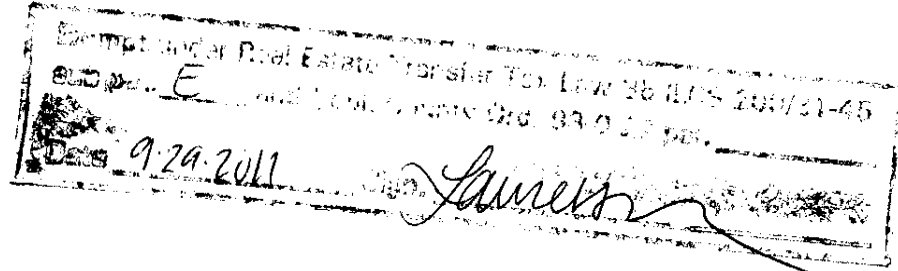 Exempt under Real Estate Transfer Tax Law 35 ILCS 200/31-45
sub par. E and Cook County Ord. 93-0-27 par.
Date 9-29-2011 Sign.